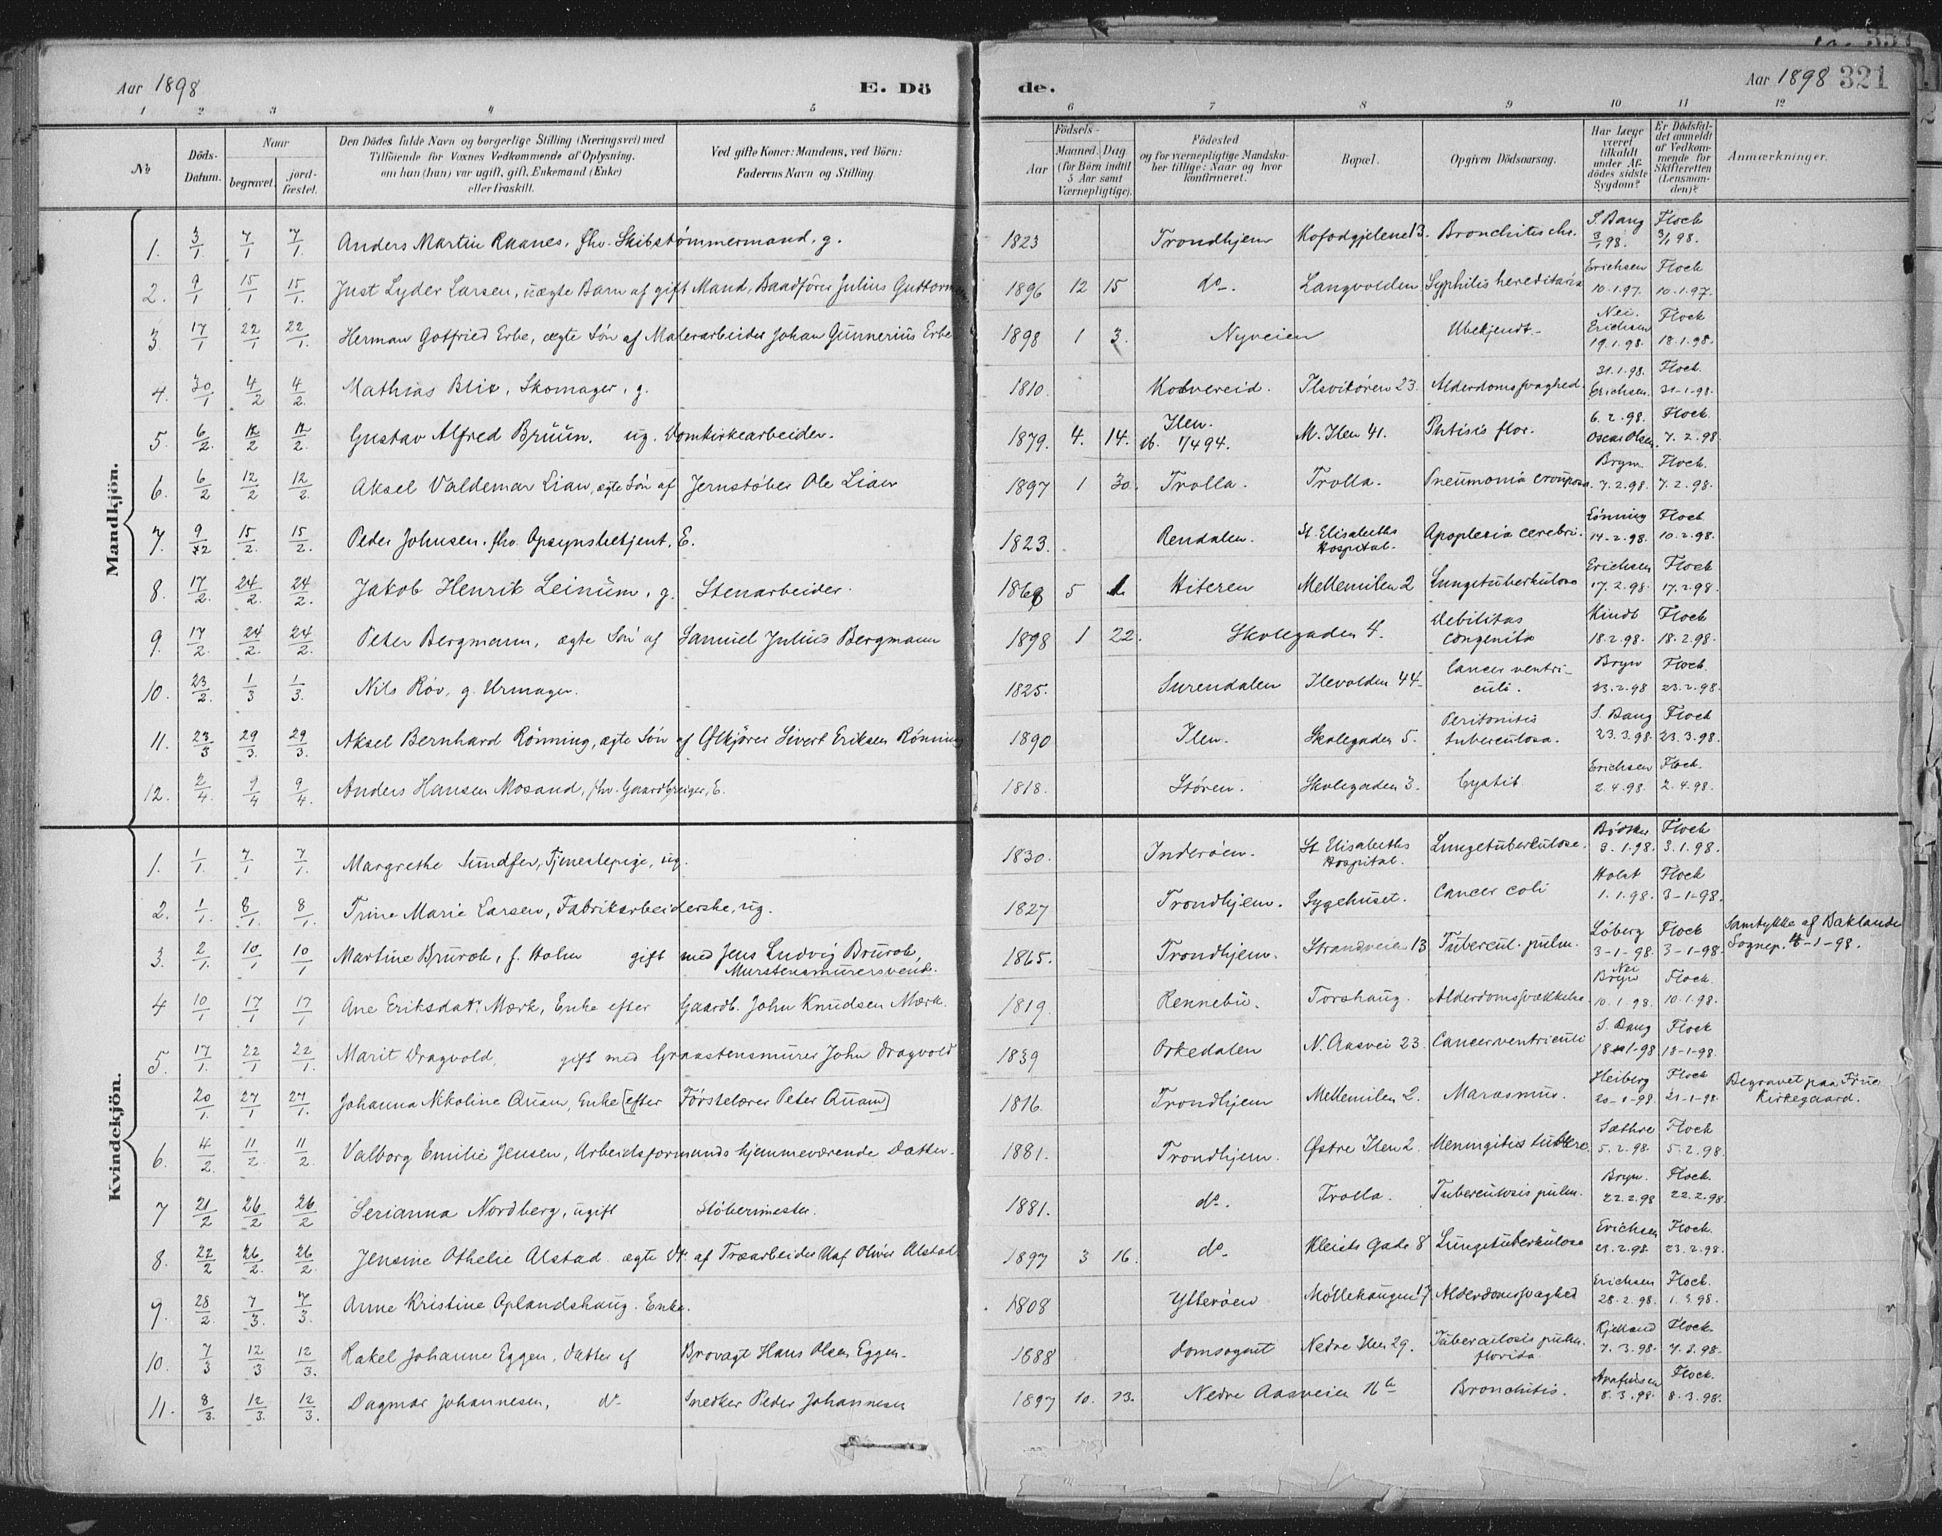 Aar 1898 E. Dö de. Aar 1898 321
1 2 3 4 5 6 7 8 9 10 11 12
№ Döds-Datum. Naar begravet. jord-fæstet. Den Dödes fulde Navn og borgerlige Stilling (Næringsvei) med Tilföiende for Voxnes Vedkommende af Oplysning, om han (hun) var ugift, gift, Enkemand (Enke) eller fraskilt. Ved gifte Koner: Mandens, ved Börn: Faderens Navn og Stilling. Födsels- Aar Maaned. Dag (for Börn indtil 5 Aar samt Værnepligtige). Födested og for værnepligtige Mandskaber tillige: Naar og hvor konfirmeret. Bopæl. Opgiven Dödsaarsag. Har Læge været tilkaldt under Afdödes sidste Sygdom? Er Dödsfaldet anmeldt af Vedkommende for Skifteretten (Lensmanden)? Anmærkninger.
Mandkjön.
1. 3/1 7/1 7/1. Anders Martin Raanes, fhv. Skibstømmermand, g. 1823 Trondhjem Kofodgjelene 13. Bronchitis chr. S. Bang 3/1 98. Flock 3/1 98.
2. 9/1 15/1 15/1. Just Lyder Larsen, uægte Barn af gift Mand, Baadfører Julius Guttorm 1896 12 15 do. Langvolden Syphilis hereditaria Erichsen 10.1.97. Flock 10.1.97.
3. 17/1 22/1 22/1. Herman Gotfried Erbe, ægte Søn af Malerarbeider Johan Gunnerius Erbe 1898 1 3. Nyveien Ubekjendt. Nei. Erichsen 19.1.98. Flock 18.1.98.
4. 30/1 4/2 4/2. Mathias Blix, Skomager, g. 1810. Kolvereid. Ilsvikøren 23. Alderdomssvaghed 31.1.98. Erichsen. Flock. 31-1-98.
5. 6/2. 12/2 12/2. Gustav Alfred Bruun. ug. Domkirkearbeider. 1879. 4. 14. Ilen. 1/4 94. M. Ilen 41. Phtisis flor. 6.2.98. Oscar Olsen. Flock. 7.2.98.
6. 6/2 12/2 12/2. Aksel Valdemar Lian, ægte Søn af Jernstøber Ole Lian 1897 1 30. Trolla. Trolla. Pneumonia crouposa. Bryn 7.2.98. Flock. 7.2.98.
7. 9/2 15/2. 15/2. Peder Johnsen. fhv. Opsynsbetjent. E. 1823. Rendalen. St. Elisabeths Hospital. Apoplexia cerebri. Lønning 14.2.98. Floch 10.2.98.
8. 17/2. 24/2. 24/2. Jakob Henrik Leinum, g. Stenarbeider. 5 1. Hiteren Mellemilen 2 Lungetuberkulose Erichsen 17.2.98. Flock 17.2.98.
9. 17/2. 24/2. 24/2. Peter Bergmann, ægte Søn af Samuel Julius Bergmann 1898 1 22. Skolegaden 4. Debilitas congenita Kindt 18.2.98. Flock 18.2.98.
10. 23/2 1/3 1/3. Nils Røv, g. Urmager. 1825. Surendalen Ilevolden 44 Cancer ventriculi. Bryn 23.2.98 Flock. 23.2.98.
11. 23/3 29/3. 29/3. Aksel Bernhard Rönning, ægte Søn af Ølkjører Sivert Eriksen Rönning 1890 Ilen. Skolegaden 5. Peritonitis tuberculosa. S. Bang 23.3.98. Flock 23.3.98.
12. 2/4. 9/4 9/4. Anders Hansen Mosand, fhv. Gaardbruger, E. 1818. Støren. Skolegaden 3. Cystit Erichsen 2.4.98. Flock. 2.4.98.
Kvindekjön.
1. 1/1. 7/1 7/1. Margrethe Sundfer, Tjenestepige, ug. 1830. Inderøen. St. Elisabeths Hospital. Lungetuberkulose. 3.1.98. Flock 3.1.98.
2. 1/1. 8/1 8/1. Trine Marie Larsen, Fabrikarbeiderske, ug. 1827 Trondhjem. Sygehuset. Cancer coli Holst 1.1.98. Flock 3-1-98.
3. 2/1. 10/1 10/1. Martine Brurok, f. Holm gift med Jens Ludvig Brurok, Murstensmurersvend. 1865. Trondhjem. Strandveien 13 Tubercul. pulm. Løberg 3-1-98. Flock 3-1-98. Samtykke af Baklandets Sognep. 4-1-98.
4 10/1 17/1 17/1 Ane Eriksdatr. Mærk, Enke efter Gaardb. John Knudsen Mærk. 1819. Rennebu. Torshaug. Alderdomssvækkelse Nei Bryn 10.1.98. Flock. 10.1.98.
5. 17/1. 22/1 22/1. Marit Dragvold, gift med Graastensmurer John Dragvold 1839 Orkedalen N. Aasvei 23. Cancer ventriculi S. Bang 18-1-98 Flock 18-1-98.
20/1. 27/1 27/1. Johanna Nikoline Quam, Enke [efter Førstelærer Peter Quam] 1816. Trondhjem Mellemilen 2. Marasmus. Heiberg 20-1-98. Flock 21-1-98. Begravet paa Frue Kirkegaard.
6. 4/2. 11/2. 11/2. Valborg Emilie Jensen, Arbeidsformands hjemmeværende Datter. 1881. Trondhjem. Østre Ilen 2. Meningitis tuberc. Sæthre 5.2.98. Flock 5.2.98.
7 21/2 26/2 26/2 Serianna Nordberg, ugift Støbermester. 1881. do. Trolla. Tuberculosis pulm. Bryn. 22.2.98 Flock. 22.2.98.
8. 22/2 26/2. 26/2. Jensine Othelie Alstad. ægte Dt. af Træarbeider Olaf Oliver Alstad 1897 3 16. do. Kleists Gade 8 Lungetuberkulose Erichsen 23.2.98. Flock. 23.2.98.
9. 28/2 7/3. 7/3. Anne Kristine Oplandshaug. Enke. 1808 Ytterøen Møllehaugen 17 Alderdomssvaghed Erichsen 28.2.98. Floch. 1.3.98.
10. 7/3 12/3 12/3. Rakel Johanne Eggen, Datter af Brovagt Hans Olsen Eggen. 1888 Domsognet Nedre Ilen 29. Tuberculosis pulm. florida. Kjelland 7.3.98. Flock. 7.3.98.
11. 8/3. 12/3. 12/3. Dagmar Johannesen, do. Snedker Peder Johannesen 1897 10. 23. Nedre Aasveien 16b Bronchitis. 8.3.98. Flock. 8.3.98.